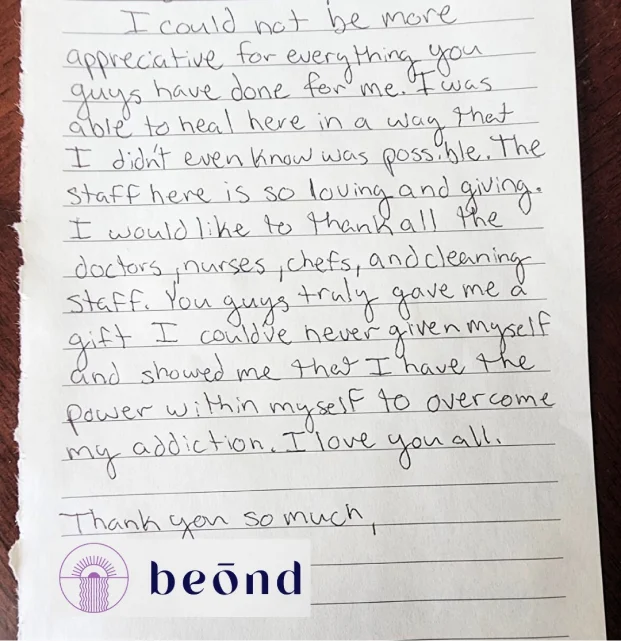 I could not be more
appreciative for everything you
guys have done for me. I was
able to heal here in a way that
I didn't even know was possible. The
staff here is so loving and giving.
I would like to thank all the
doctors, nurses, chefs, and cleaning
staff. You guys truly gave me a
gift I could've never given myself
and showed me that I have the
power within myself to overcome
my addiction. I love you all.
Thank you so much,
beōnd